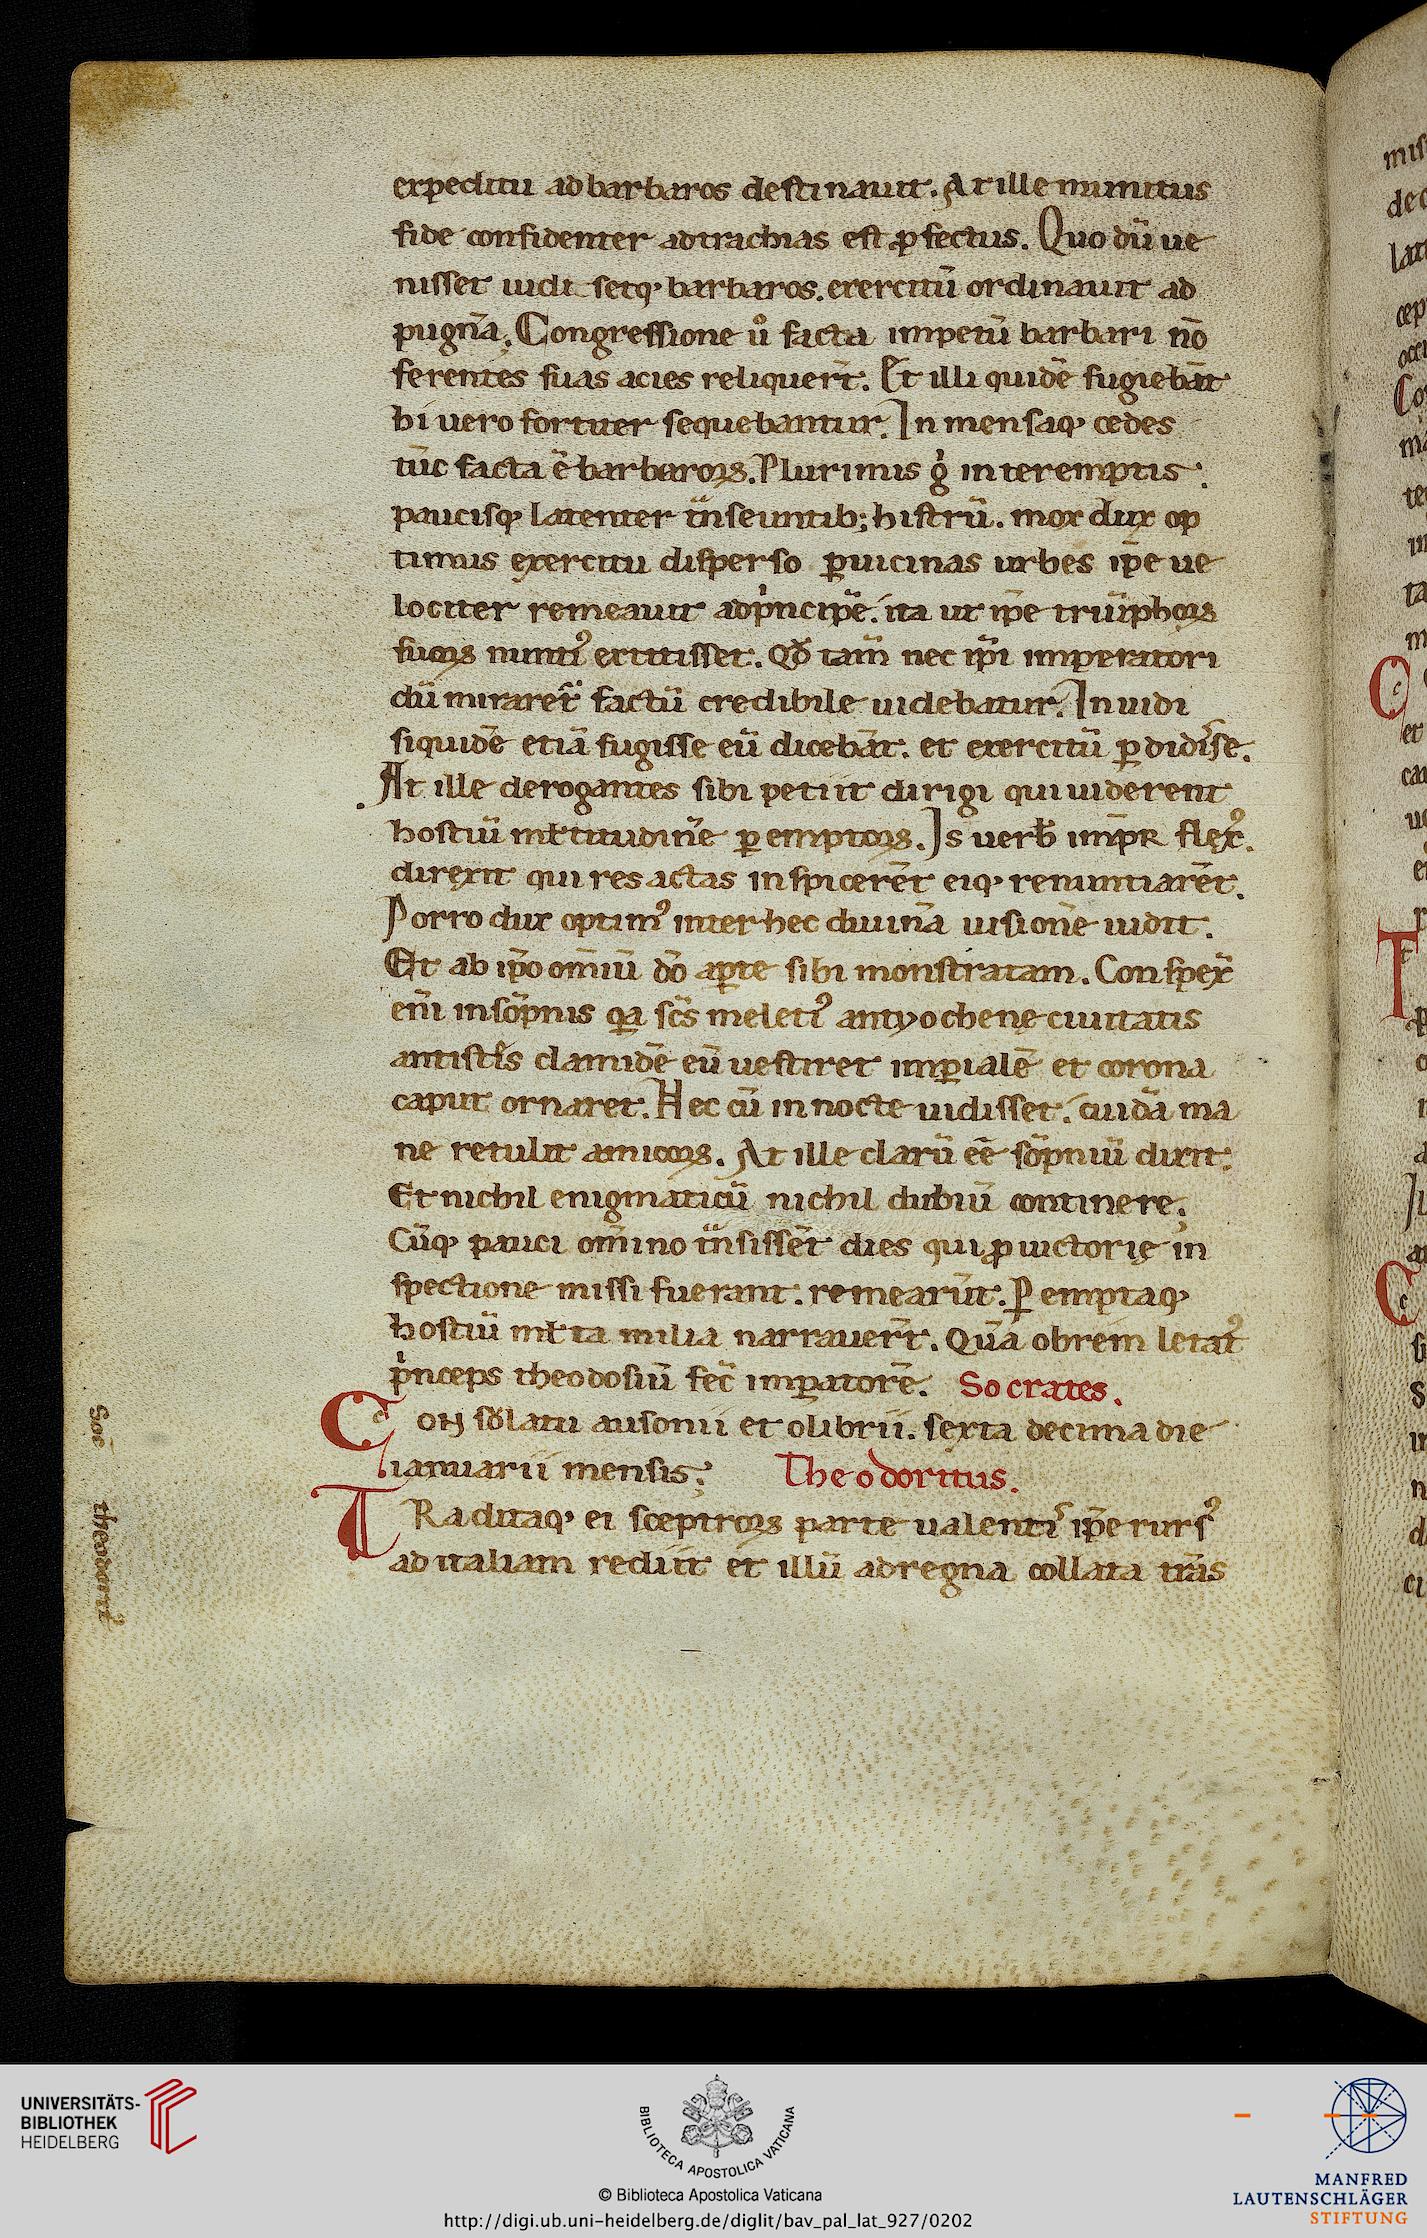 expeditū ad barbaros destinauit. At ille munitus
fide confidenter ad trachias est ꝓfectus. Quo dū ue
nisset uidissetq; barbaros. exercitū ordinauit ad
pugnā. Congressione ů facta impetū barbari nō
ferentes suas acies reliquer̄t. Et illi quidē fugiebāt
hi uero fortiter sequebantur. In mensaq; cedes
tūc facta ē barbaroꝝ. Plurimis g̊ interemptis.
paucisq; latenter t̄nseuntib; histrū. mox dux op
timus exercitu disperso ꝑ uicinas urbes ip̄e ue
lociter remeauit ad pⁱncipē. ita ut ip̄e triūphoꝝ
suoꝝ nuntiꝰ extitisset. Qd̄ tam̄ nec ip̄i imperatori
dū miraret̄ factū credibile uidebatur. Inuidi
siquidē etiā fugisse eū dicebāt. et exercitū ꝑdidisse.
At ille derogantes sibi petiit dirigi qui uiderent
hostiū ml̄titudinē ꝑemptoꝝ. Is uerb̄ imp̄r flexꝰ.
direxit qui res actas inspicerēt eiq; renuntiarēt.
Porro dux optimꝰ inter hec diuinā uisionē uidit.
Et ab ip̄o om̄iū dō aꝑte sibi monstratam. Conspex̄
eni̅ in sōpnis qa sc̄s meletiꝰ antyochenę ciuitatis
antistes clamidē eū uestiret imꝑialē et corona
caput ornaret. Hec cū in nocte uidisset. cuidā ma
ne retulit amicoꝝ. At ille clarū eē sōpniū dixit.
Et nichil enigmaticū nichil dubiū continere.
Cūq; pauci om̄ino t̄nsissēt dies qui ꝓ uictorię in
spectione missi fuerant. remearūt. Ꝑemptaq;
hostiū ml̄ta milia narrauer̄t. Quā ob rem letatꝰ
pⁱnceps theodosiū fec̄ imꝑatorē. Socrates.
Consōlatu ausonii et olibrii. sexta decima die
ianuarii mensis. Theodoritus.
TRaditaq; ei sceptroꝝ parte ualentiⁱ ip̄e rursꝰ
ad italiam rediit et illū ad regna collata trās
Soc̄
theodoritꝰ
UNIVERSITÄTS-
BIBLIOTHEK
HEIDELBERG
BIBLIOTECA APOSTOLICA VATICANA
© Biblioteca Apostolica Vaticana
http://digi.ub.uni-heidelberg.de/diglit/bav_pal_lat_927/0202
MANFRED
LAUTENSCHLÄGER
STIFTUNG